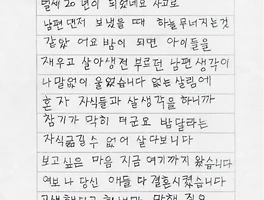 벌써 20년이 되었네요 사고로
남편 먼저 보냈을때 하늘무너지는것
같았어요 밤이 되면 아이들을
재우고 살아생전 부르던 남편 생각이
나 말없이 울었습니다 없는살림에
혼자 자식들과 살생각을하니까
잠기가 막히더군요 밤달라는
자식굶길수 없어 살다보니다
보고싶은 마음 지금 여기까지 왔습니다
여보 나 당신 애들 다 결혼시켰습니다